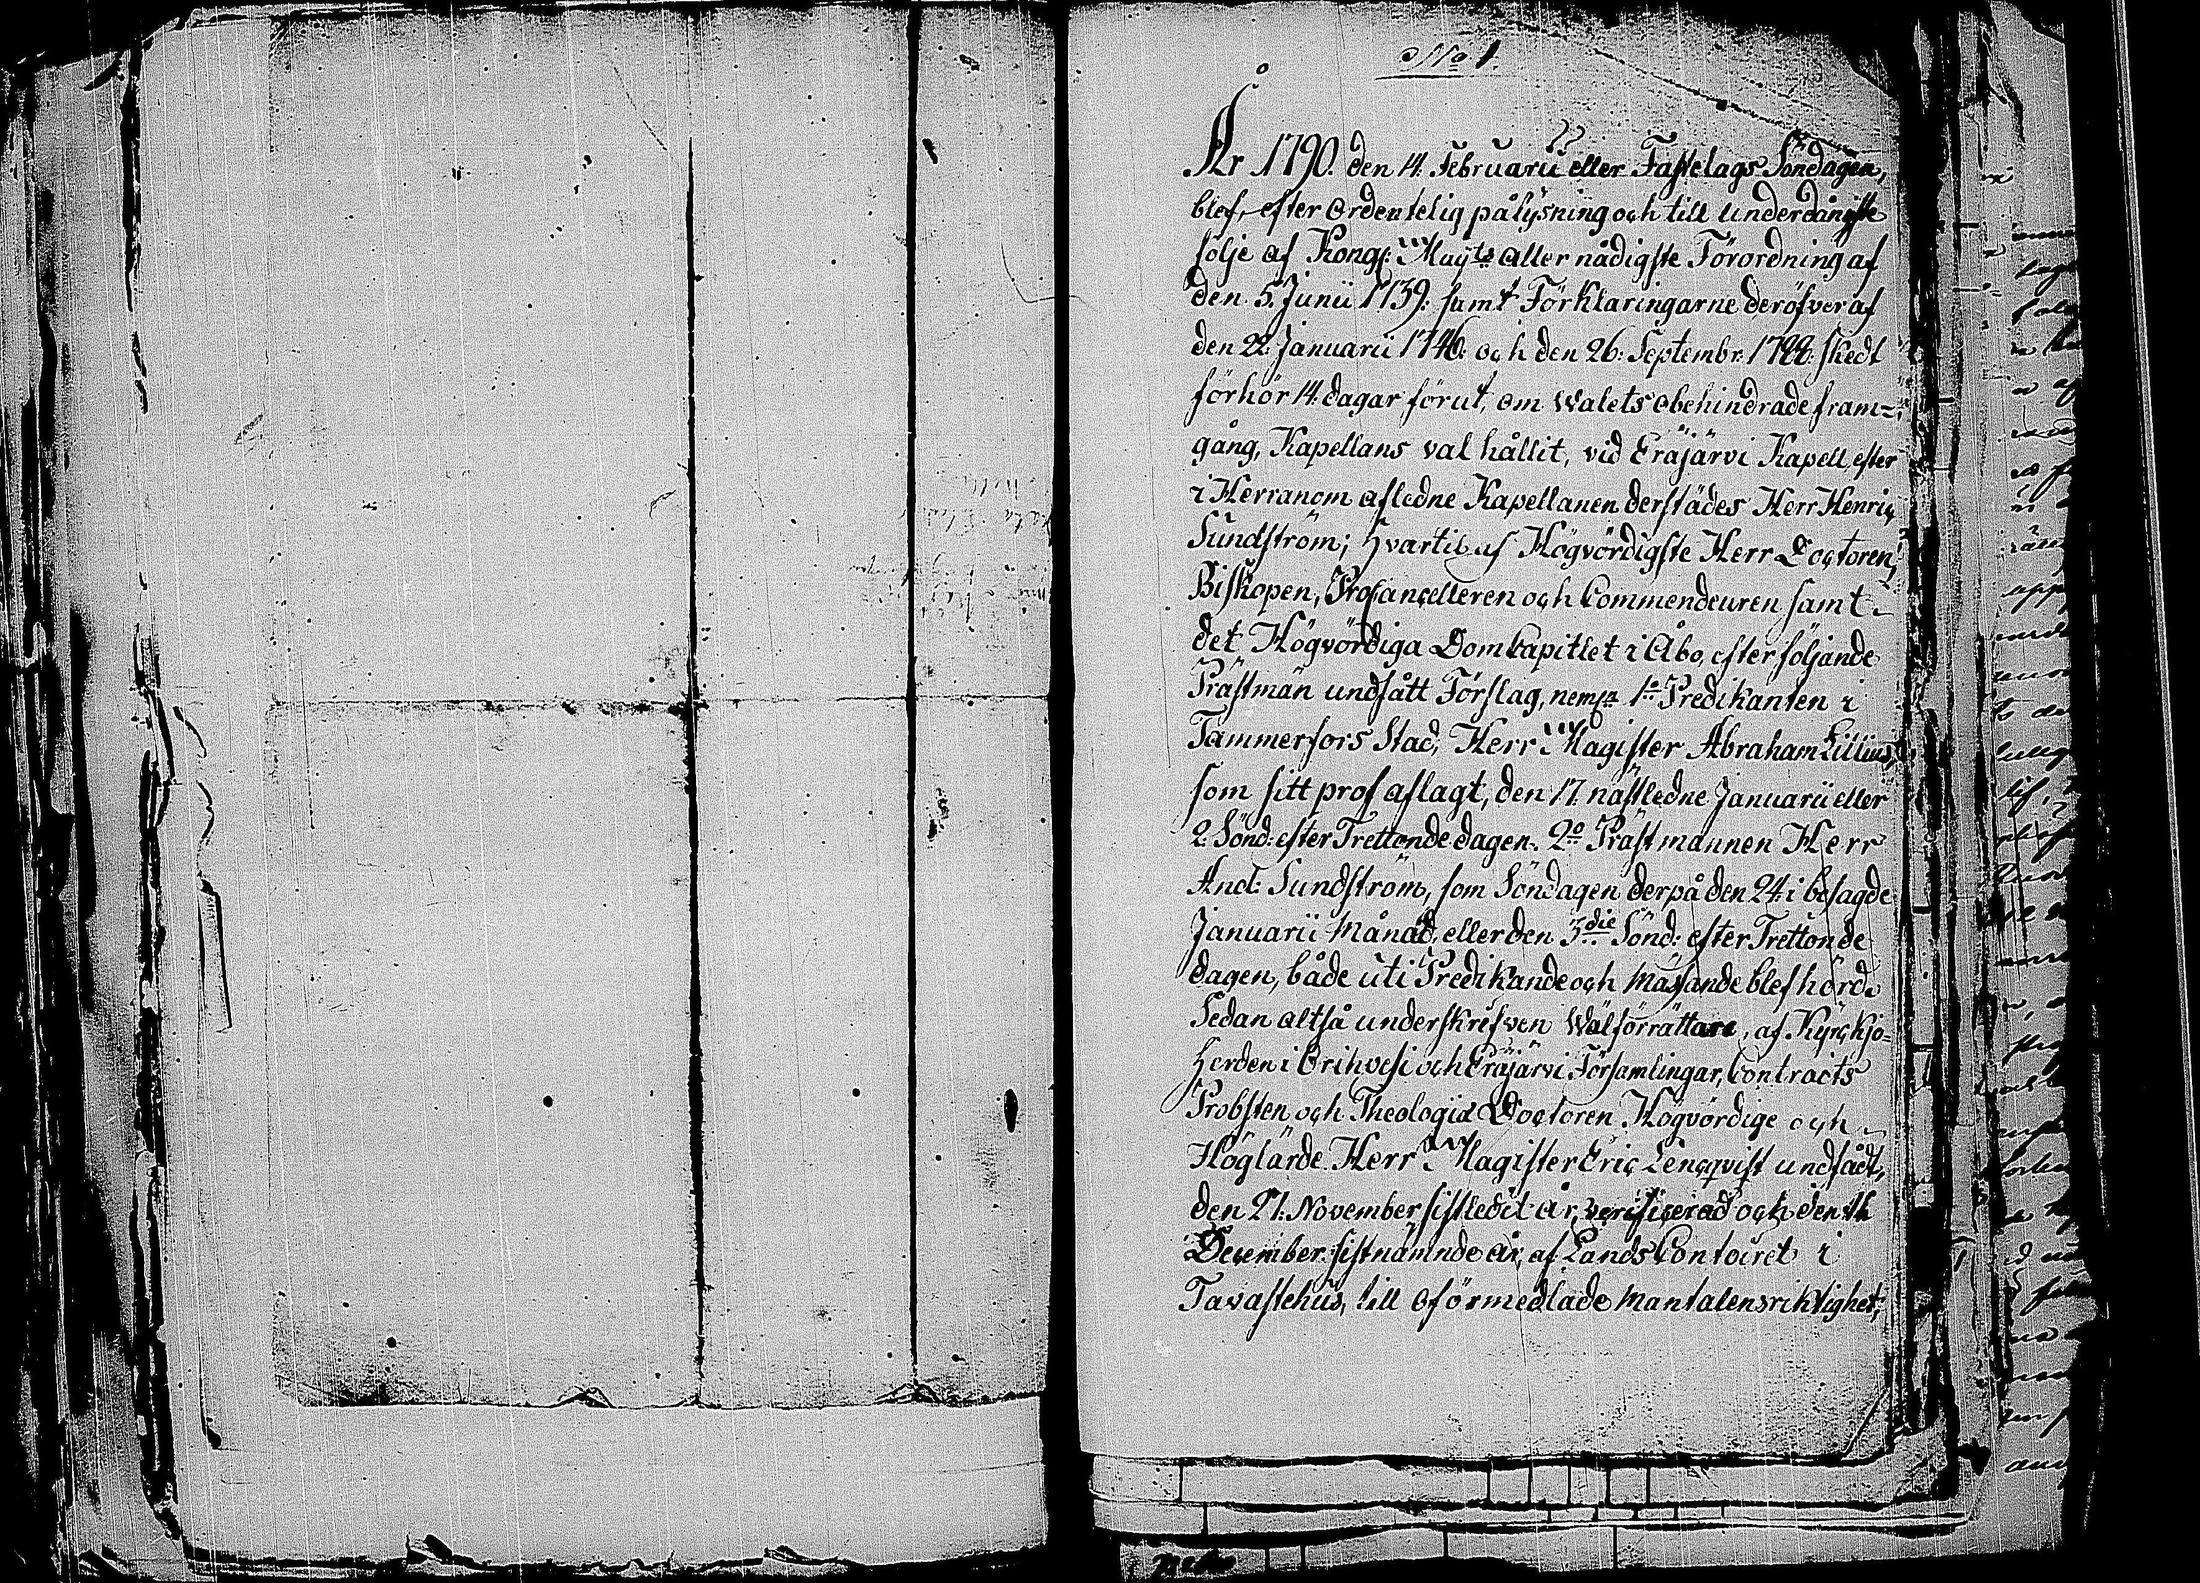 No 1.
År 1790. den 14. Februarii eller Fastelags Söndagen,
blef, efter Ordentelig pålysning och till underdånigste
följe af Kongl: Maijts aller nådigste Förordning af
den 5. Junii 1739. samt Förklaringarne deröfver af
den 22. Januarii 1746. och den 26. Septembr. 1788. skedt
förhör 14. dagar förut, om Walets obehindrade fram=
gång, Kapellans val hållit, vid Eräjärvi Kapell, efter
i Herranom afledne Kapellanen derstädes Herr Henric
Sundström; hvartil af Högvördigste Herr Doctoren,
Biskopen, Procancelleren och Commendeuren samt
det Högvördiga Domkapitlet i Åbo, efterföljande
Prästmän undfått Förslag, neml. 1o Predikanten i
Tammerfors Stad, Herr Magister Abraham Lilius,
som sitt prof aflagt, den 17. nästledne Januarii eller
2. Sönd: efter Trettonde dagen. 2o Prästmannen Herr
And: Sundström, som Söndagen derpå den 24. i besagde
Januarii Månad, eller den 3die Sönd: efter Trettonde
dagen, både uti Predikande och Mässande blef hörd.
Sedan altså underskrefven Walförrättare, af Kyrckjo=
herden i Orihvesi och Eräjärvi Församlingar, Contracts
Probsten och Theologiæ Doctoren Högvördige och
Höglärde Herr Magister Eric Lencqvist undfådt,
den 27. November sistledit år, verificerad och den
December sistnämnde år, af Lands Contoiret i
Tavastehus, till oförmedlade Mantalens riktighet,